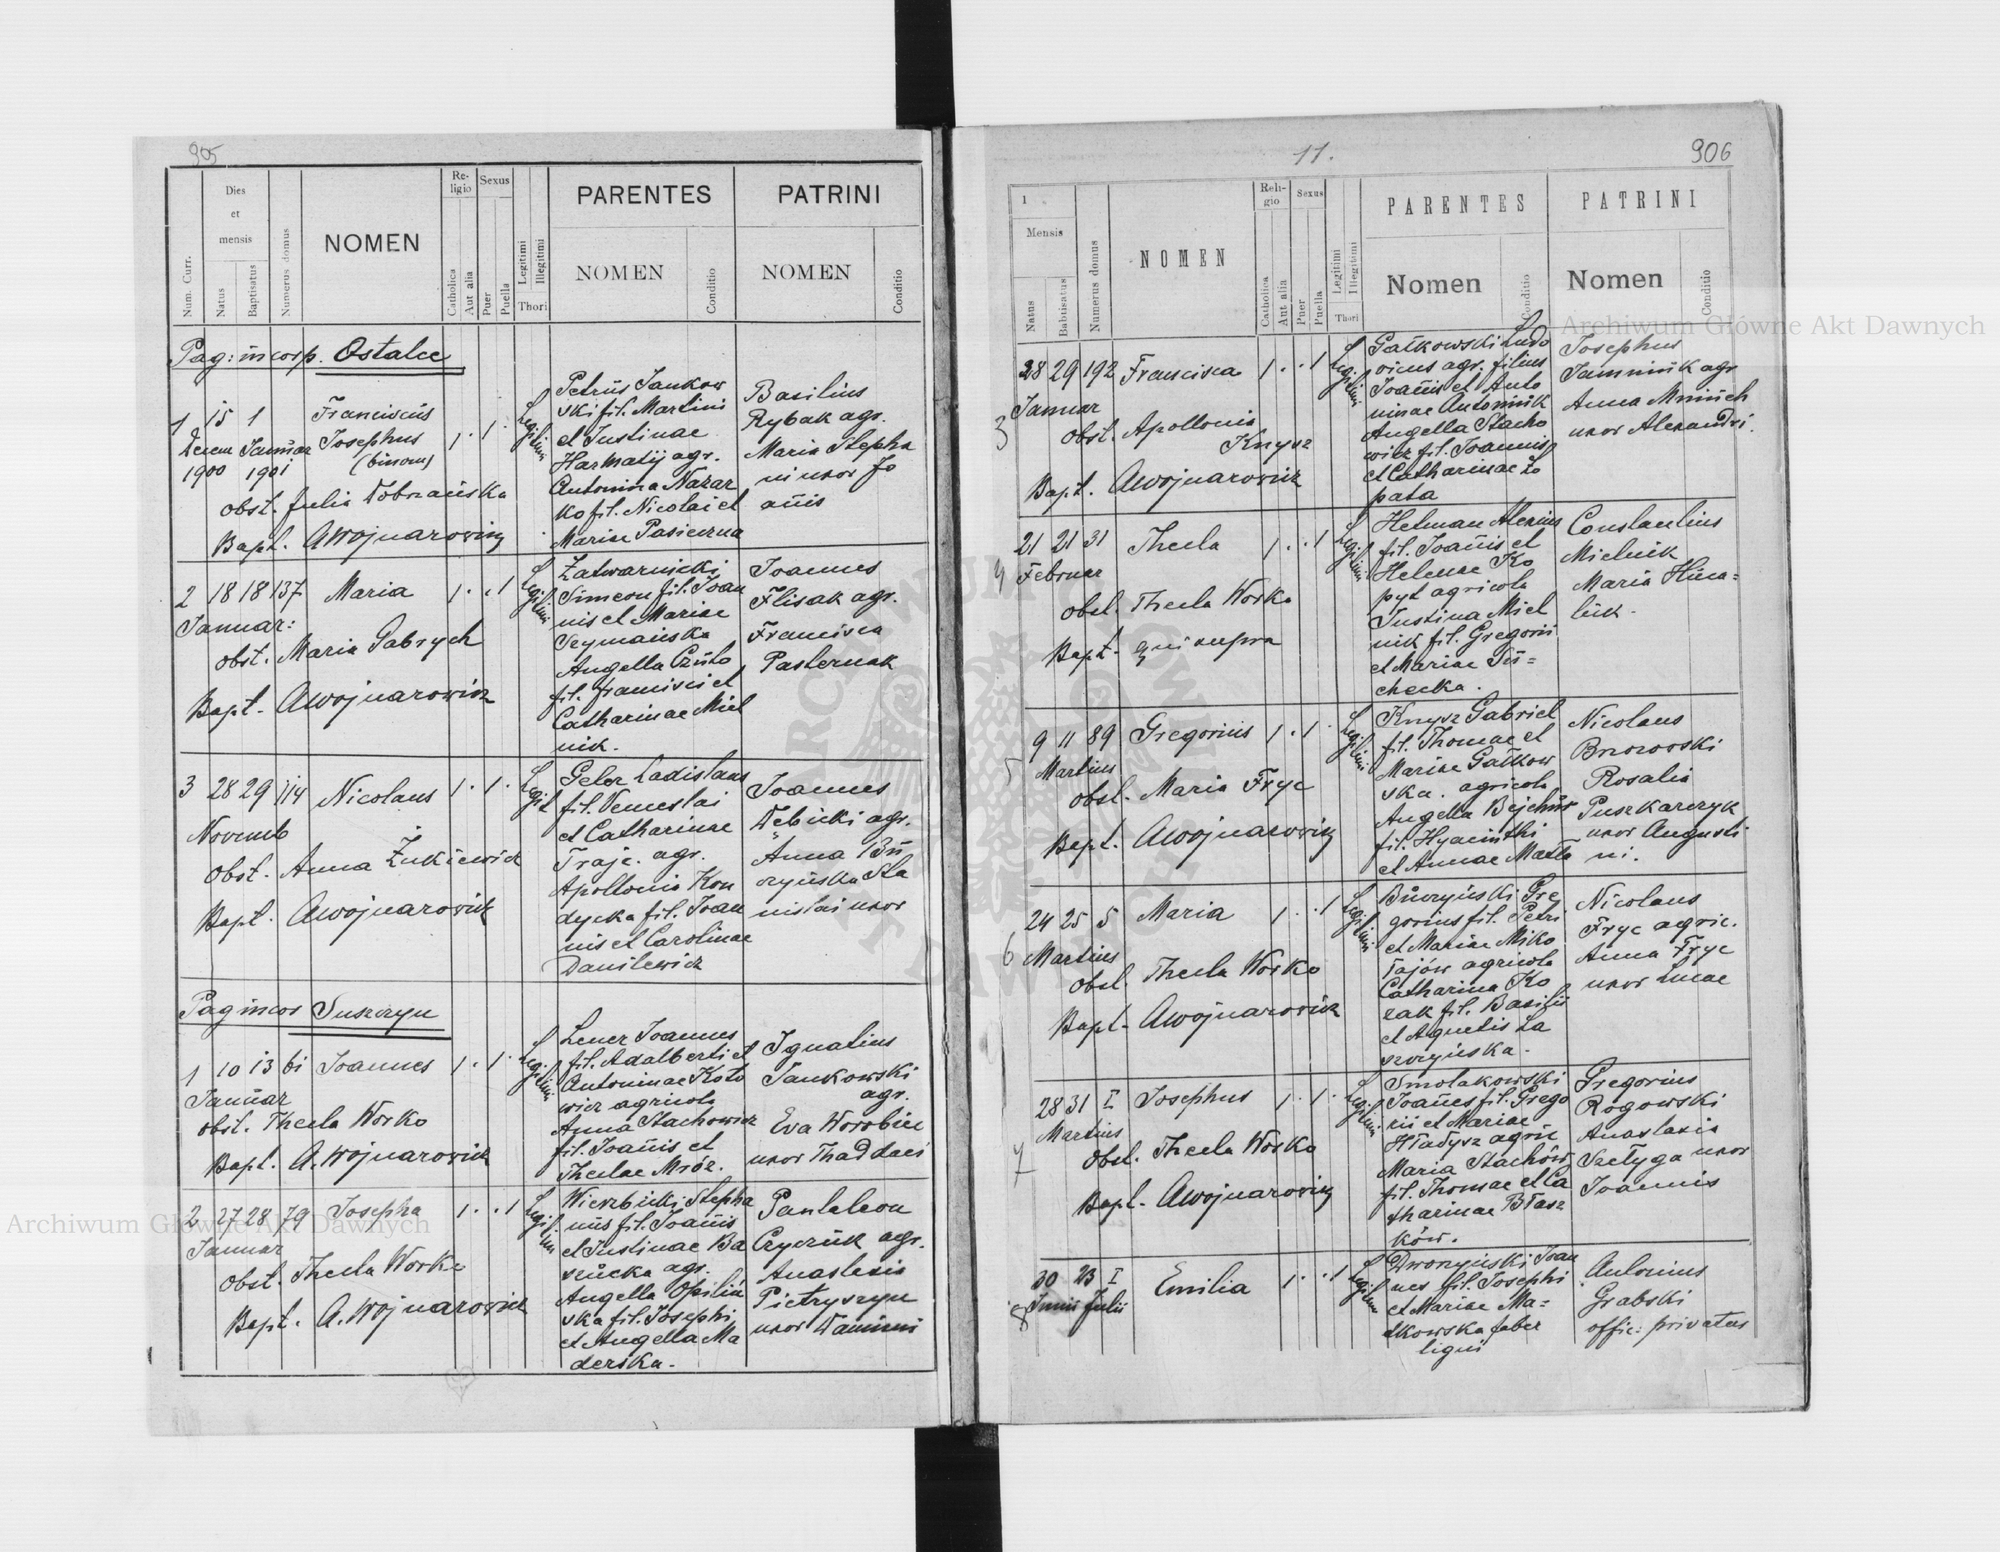 905
Num. Curr.
Dies
et
mensis
Natus
Baptisatus
Numerus domus
NOMEN
Re-
ligio
Catholica
Aut alia
Sexus
Puer
Puella
Legitimi
Illegitimi
Thori
PARENTES
NOMEN
Conditio
PATRINI
NOMEN
Conditio
Pag: incorp. Ostalce
1 15 1 Franciscus
Josephus
(binom)
Decem Januar
1900 1901
1 . 1 .
Legitimi
obst. Julia Dobrzańska
Bapt. AWojnarowicz
Petrus Jankow
ski fil. Martini
et Justinae
Harmatij agr.
Antonina Nazar
ko fil. Nicolai et
Mariae Pasieczna
Basilius
Rybak agr.
Maria Stepha
ni uxor Jo
anis
2 18 18 137 Maria 1 . . 1
Januar:
Legitimi
obst. Maria Gabrych
Bapt. AWojnarowicz
Zatwarnicki
Simeon fil. Joan
nis et Mariae
Szymańska
Angella Czuło
fil. Francisci et
Catharinae Miel
nik.
Joannes
Flisak agr.
Francisca
Pasternak
3 28 29 114 Nicolaus 1 . 1 .
Novemb
Legit
obst. Anna Żukiewicz
Bapt. AWojnarowicz
Geler Ladislaus
fil. Venceslai
et Catharinae
Trajc. agr.
Apollonia Kon
dycka fil. Joan
nis et Carolinae
Danilewicz
Joannes
Dębicki agr.
Anna Bu
czyńska Sta
nislai uxor
Pag incor Suszczyn
1 10 13 61 Joannes 1 . 1 .
Januar
Legitimi
obst. Thecla Worko
Bapt. A. Wojnarowicz
Lener Joannes
fil. Adalberti et
Antoninae Koto
wicz agricola
Anna Stachowicz
fil. Joanis et
Theclae Mróz.
Ignatius
Jankowski
agr.
Eva Worobiec
uxor Thaddaei
2 27 28 79 Josepha 1 . . 1
Januar
Legitimi
obst. Thecla Worko
Bapt. A. Wojnarowicz
Wierzbicki Stepha
nus fil. Joanis
et Justinae Ba
szucka agr.
Angella Opiliń
ska fil. Josephi
et Angella Ma
derska.
Pantaleon
Czyczuk agr.
Anastasia
Pietryszyn
uxor Damiani
11.
906
1
Mensis
Natus
Babtisatus
Numerus domus
NOMEN
Reli-
gio
Catholica
Aut alia
Sexus
Puer
Puella
Legitimi
Illegitimi
Thori
PARENTES
Nomen
Conditio
PATRINI
Nomen
Conditio
28 29 192 Francisca 1 . . 1
Januar
3
Legitimi
obst. Apollonia
Knysz
Bapt. AWojnarowicz
Gałkowski Ludo
vicus agr. filius
Joanis et Anto
ninae Antoniuk
Angella Stacho
wicz fil. Joannis
et Catharinae Ło
pata
Josephus
Jamniuk agr
Anna Mnnich
uxor Alexandri.
21 21 31 Thecla 1 . . 1
4 Februar
Legitimi
obst. Thecla Worko
Bapt. qui supra
Hetman Alexius
fil. Joanis et
Helenae Ko
pyt agricola
Justina Miel
nik fil. Gregorii
et Mariae Su=
checka.
Constantius
Mielnik
Maria
9 11 89 Gregorius 1 . 1 .
5 Martius
Legitimi
obst. Maria Fryc
Bapt. AWojnarowicz
Knysz Gabriel
fil. Thomae et
Mariae Gałkow
ska. agricola
Angella
fil. Hyacinthi
et Annae
Nicolaus
Brzozowski
Rosalia
Puszkarczyk
uxor Augusti
ni.
24 25 5 Maria 1 . . 1
6 Martius
Legitimi
obst. Thecla Worko
Bapt. AWojnarowicz
Buczyński Gre
gorius fil. Petri
et Mariae Miko
łajów agricola
Catharina Ko
zak fil. Basilii
et Agnetis La
szczyńska.
Nicolaus
Fryc agric.
Anna Fryc
uxor Lucae
28 31 I Josephus 1 . 1 .
Martius
7
Legitimi
obst. Thecla Worko
Bapt. AWojnarowicz
Smolakowski
Joanes fil. Grego
rii et Mariae
Hładysz agric
Maria Stachów
fil. Thomae et Ca
tharinae Błasz
ków.
Gregorius
Rogowski
Anastasia
Szeliga uxor
Joannis
30 23 I Emilia 1 . . 1
8 Junii Julii
Legitimi
Dworzyński Joan
nes fil. Josephi
et Mariae Ma=
tkowska faber
ligni
Antonius
Grabski
offic: privatus
Archiwum Główne Akt Dawnych
Archiwum Główne Akt Dawnych